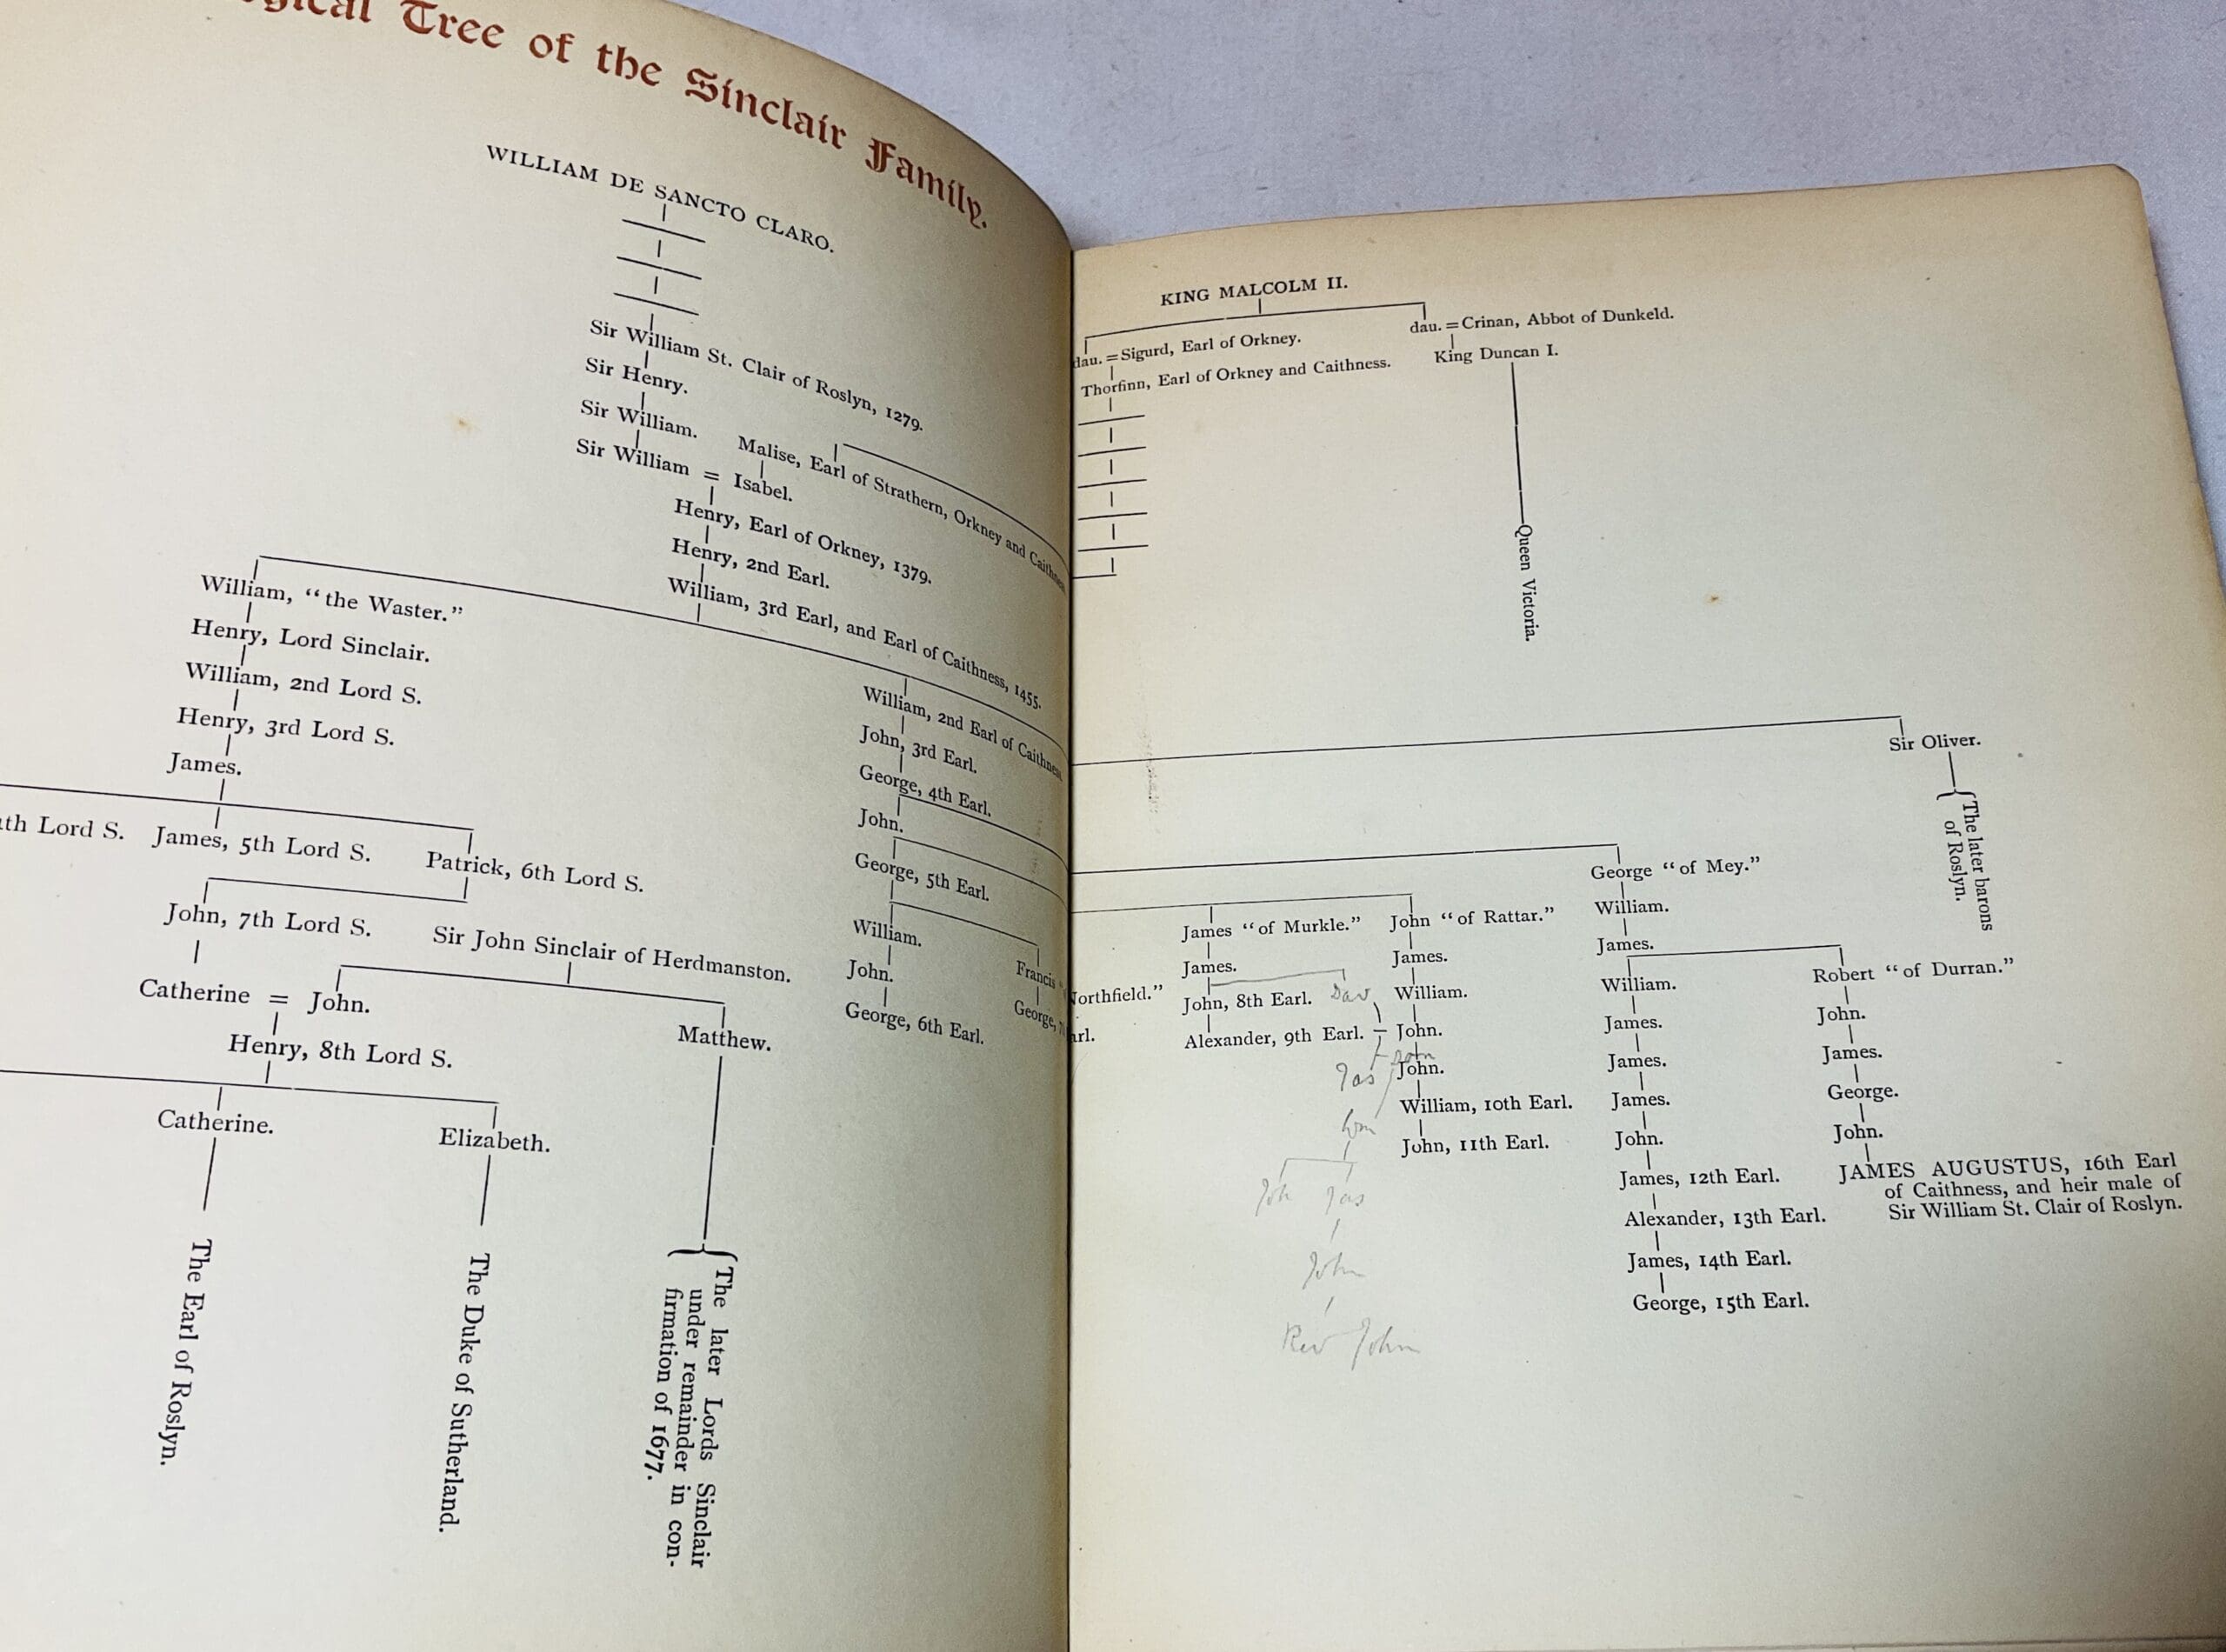 Tree of the Sinclair Family.
WILLIAM DE SANCTO CLARO.
Sir William St. Clair of Roslyn, 1279.
Sir Henry.
Sir William.
Malise, Earl of Strathern, Orkney and
Sir William = Isabel.
Henry, Earl of Orkney, 1379.
Henry, 2nd Earl.
William, 3rd Earl, and Earl of Caithness, 1455.
William, "the Waster."
Henry, Lord Sinclair.
William, 2nd Lord S.
Henry, 3rd Lord S.
James.
Lord S.
James, 5th Lord S.
Patrick, 6th Lord S.
John, 7th Lord S.
Sir John Sinclair of Herdmanston.
Catherine = John.
Matthew.
Henry, 8th Lord S.
Catherine.
Elizabeth.
The Earl of Roslyn.
The Duke of Sutherland.
The later Lords Sinclair
under remainder in con-
firmation of 1677.
William, 2nd Earl of
John, 3rd Earl.
George, 4th Earl.
John.
George, 5th Earl.
William.
Francis
John.
George,
George, 6th Earl.
KING MALCOLM II.
dau. = Sigurd, Earl of Orkney.
dau. = Crinan, Abbot of Dunkeld.
Thorfinn, Earl of Orkney and Caithness.
King Duncan I.
Queen Victoria.
Sir Oliver.
The later barons
of Roslyn.
George "of Mey."
William.
James.
William.
James.
James.
James.
John.
James, 12th Earl.
Alexander, 13th Earl.
James, 14th Earl.
George, 15th Earl.
Robert "of Durran."
John.
James.
George.
John.
JAMES AUGUSTUS, 16th Earl
of Caithness, and heir male of
Sir William St. Clair of Roslyn.
James "of Murkle."
James.
John, 8th Earl.
Alexander, 9th Earl.
John "of Rattar."
James.
William.
John.
John.
William, 10th Earl.
John, 11th Earl.
Dav
Jas
Wm
Jas
John
Rev John